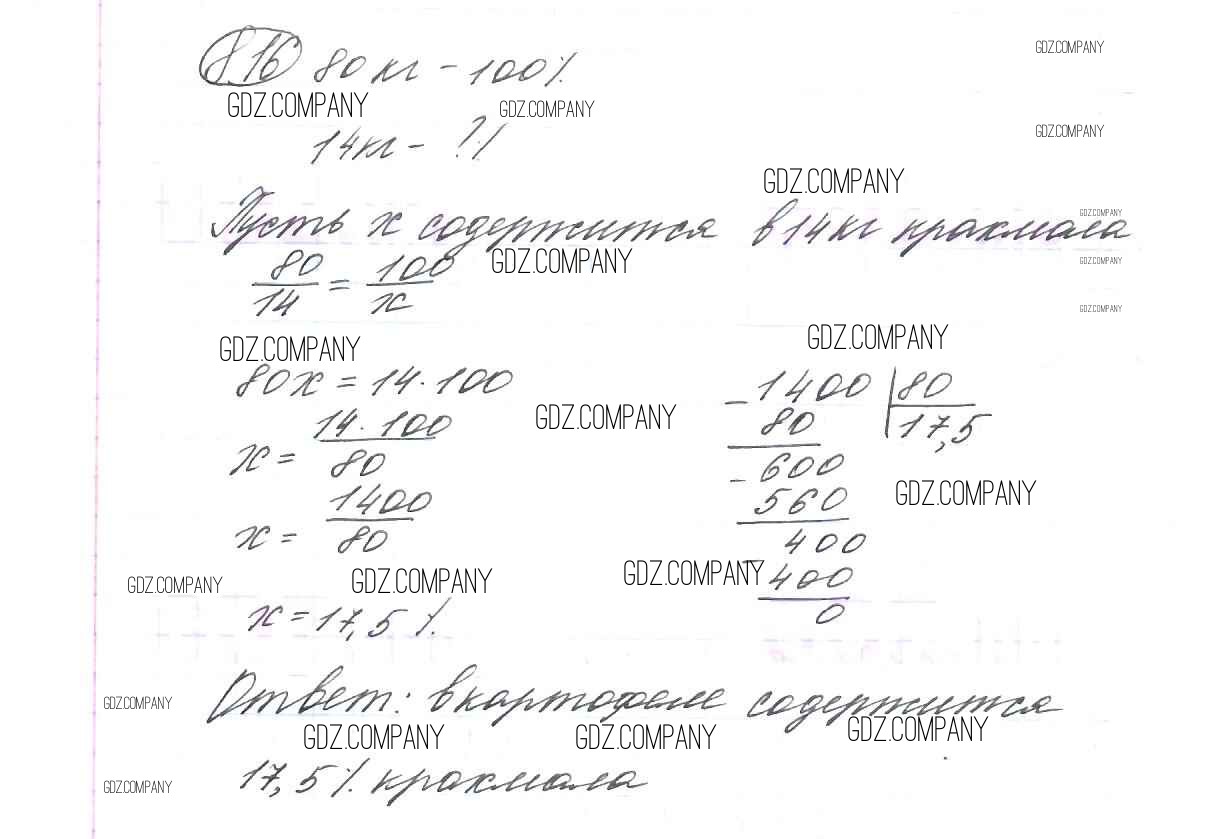 8.16 80 кг - 100%
GDZ.COMPANY
GDZ.COMPANY GDZ.COMPANY
14 кг - ?%
GDZ.COMPANY
GDZ.COMPANY
Пусть х содержится в 14 кг крахмала
GDZ.COMPANY
80/14 = 100/х
GDZ.COMPANY
GDZ.COMPANY
GDZ.COMPANY
GDZ.COMPANY GDZ.COMPANY
80х = 14·100
х = 14·100/80
GDZ.COMPANY
х = 1400/80
- 1400 | 80
80 17,5
- 600
560
GDZ.COMPANY
400
400
0
GDZ.COMPANY GDZ.COMPANY GDZ.COMPANY
х = 17,5%.
Ответ: в картофеле содержится
GDZ.COMPANY
GDZ.COMPANY GDZ.COMPANY GDZ.COMPANY
17,5% крахмала
GDZ.COMPANY